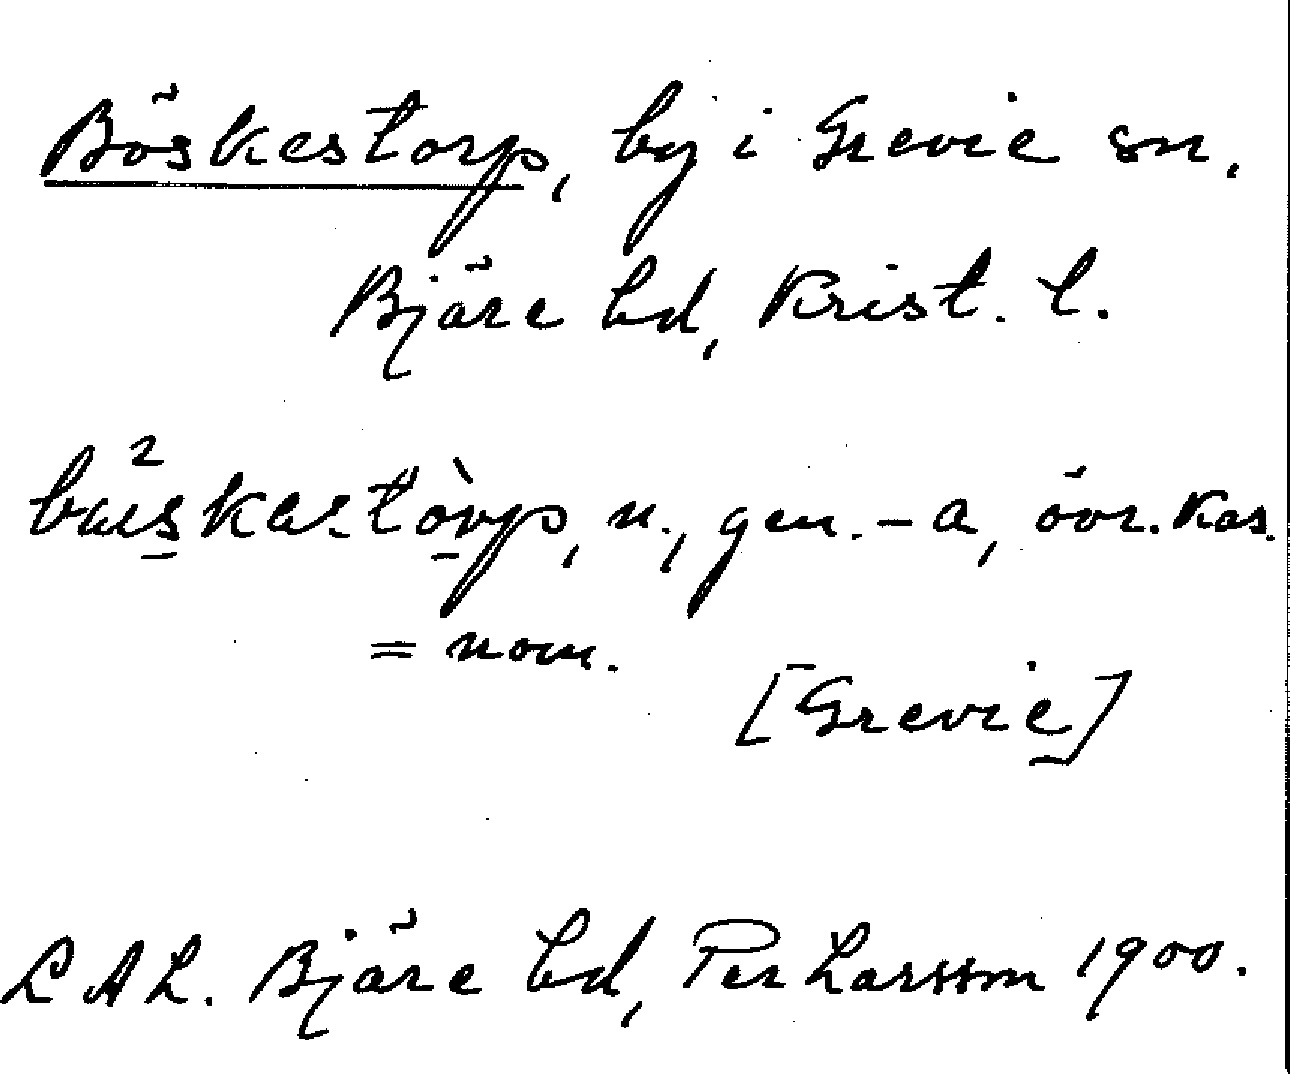 Böskestorp, by i Grevie sn.
Bjäre hd, Krist. l.
n., gen. -a, övr. kas.
= nom.
[Grevie]
L A L. Bjäre hd, Per Larsson 1900.